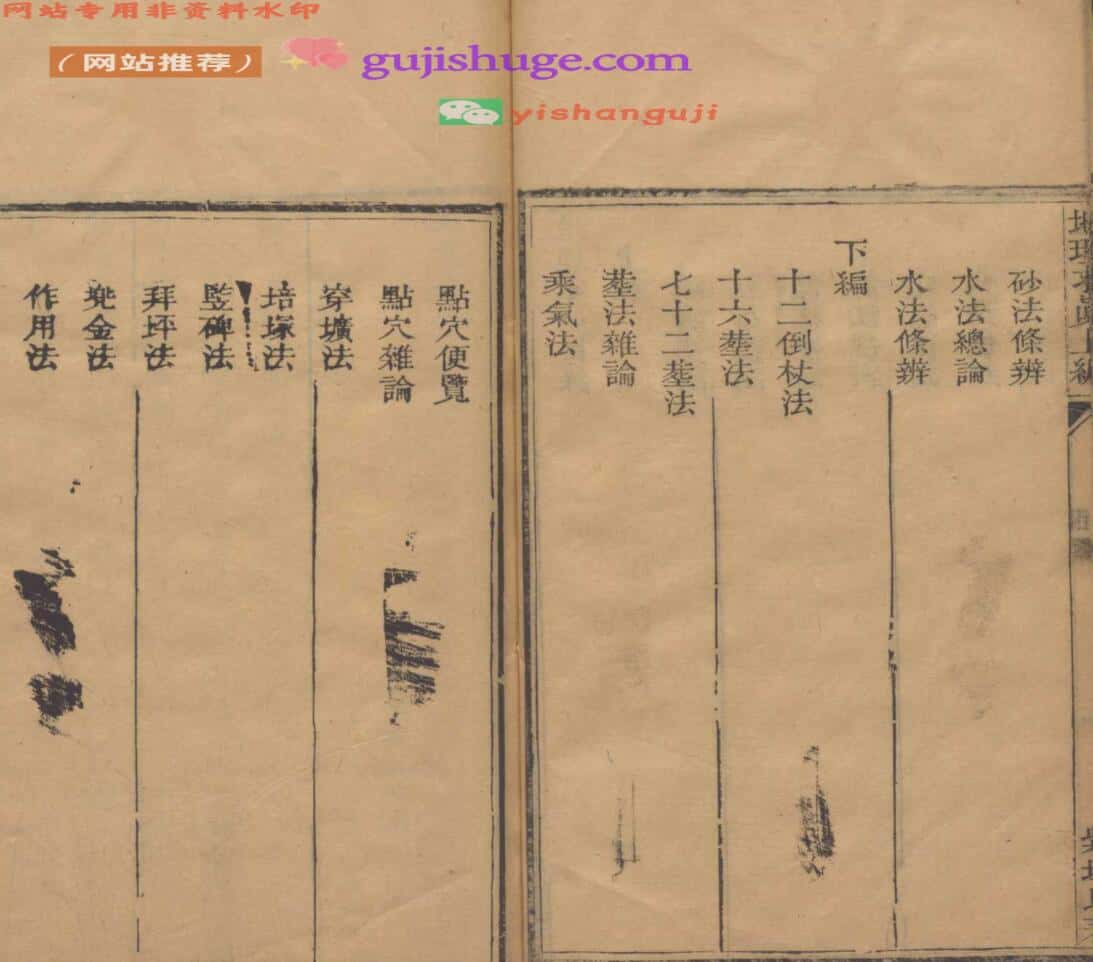 网站专用非资料水印
（网站推荐）
gujishuge.com
yishanguji
砂法條辨
水法總論
水法條辨
下編
十二倒杖法
十六塟法
七十二塟法
塟法雜論
乘氣法
點穴便覽
點穴雜論
穿壙法
培塚法
竪碑法
拜坪法
兠金法
作用法